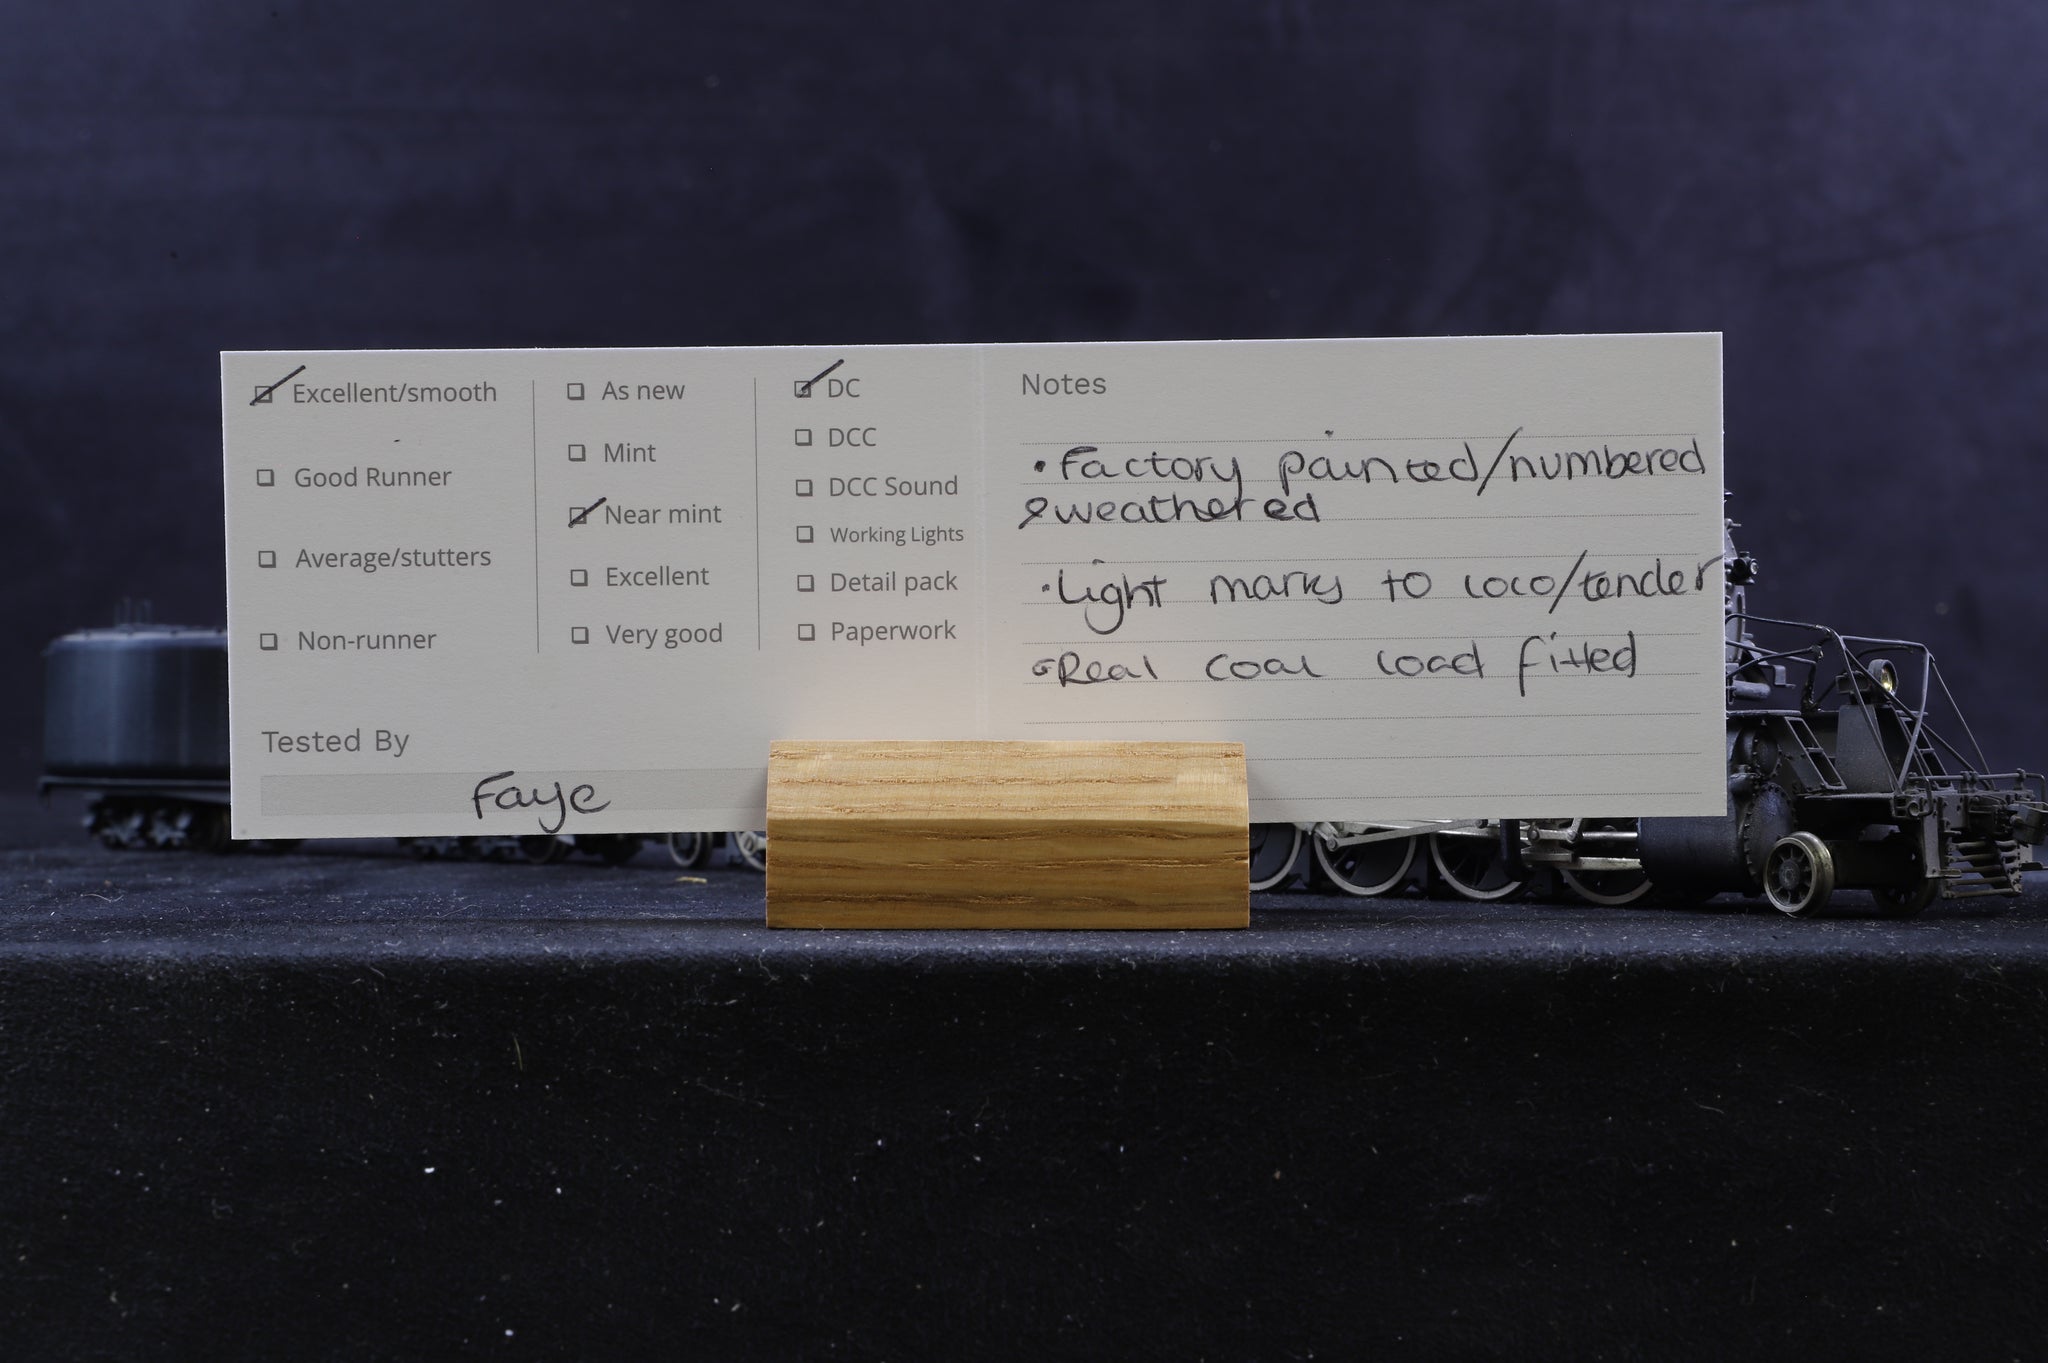 ☑ Excellent/smooth
☐ Good Runner
☐ Average/stutters
☐ Non-runner
☐ As new
☐ Mint
☑ Near mint
☐ Excellent
☐ Very good
☑ DC
☐ DCC
☐ DCC Sound
☐ Working Lights
☐ Detail pack
☐ Paperwork
Tested By
Faye
Notes
• Factory painted/numbered
& weathered
• Light marks to loco/tender
• Real coal load fitted